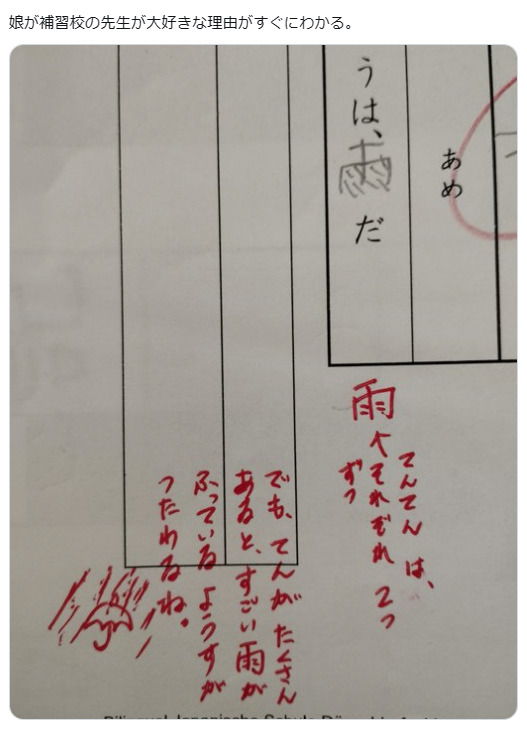 娘が補習校の先生が大好きな理由がすぐにわかる。
あめ
うは、雨だ
雨
てんてんは、
それぞれ2つ
ずつ
でも、てんがたくさん
あると、すごい雨が
ふっているようすが
つたわるね。